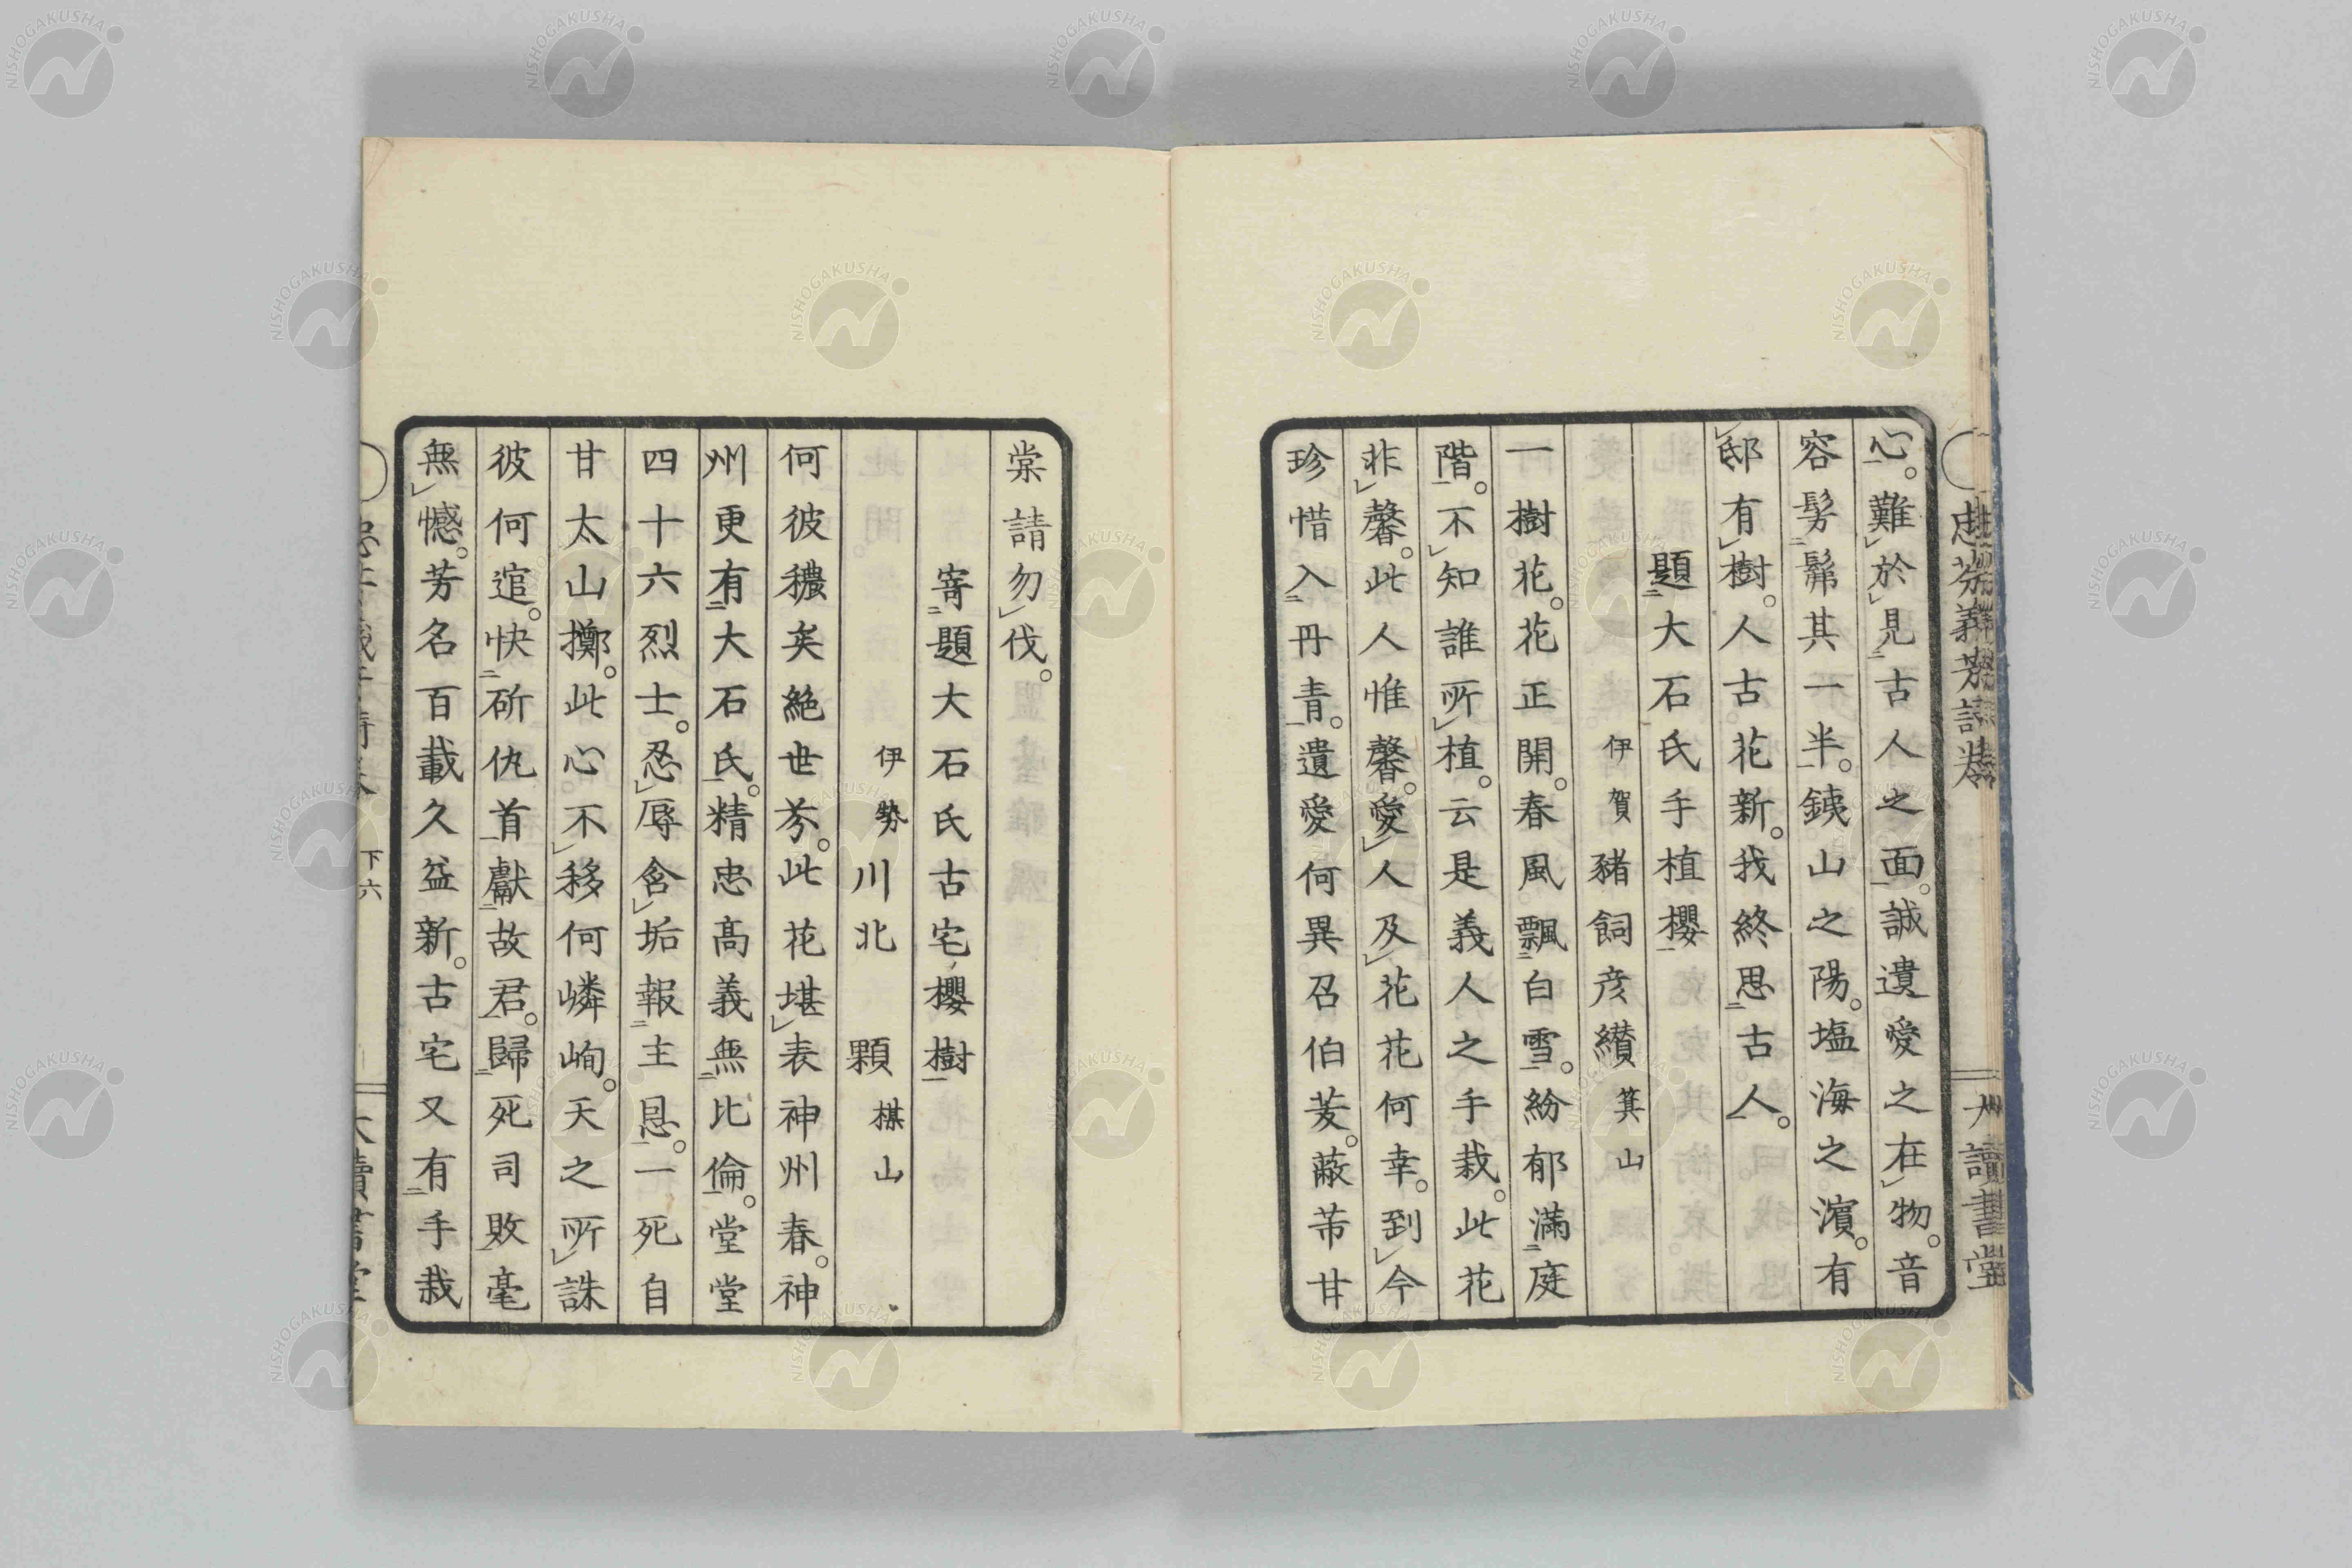 心。難於見古人之面。誠遺愛之在物。音
容髣髴其一半。銕山之陽。塩海之濱。有
邸有樹。人古花新。我終思古人。
題大石氏手植櫻
伊賀 豬飼彦纉 箕山
一樹花。花正開。春風飄白雪。紛郁滿庭
階。不知誰所植。云是義人之手栽。此花
非馨。此人惟馨。愛人及花花何幸。到今
珍惜入丹青。遺愛何異召伯茇。蔽芾甘
棠請勿伐。
寄題大石氏古宅櫻樹
伊勢 川北 顆 棋山
何彼穠矣絶世芬。此花堪表神州春。神
州更有大石氏。精忠高義無比倫。堂堂
四十六烈士。忍辱含垢報主恩。一死自
甘太山擲。此心不移何嶙峋。天之所誅
彼何逭。快斫仇首獻故君。歸死司敗毫
無憾。芳名百載久益新。古宅又有手栽
下六
NISHOGAKUSHA